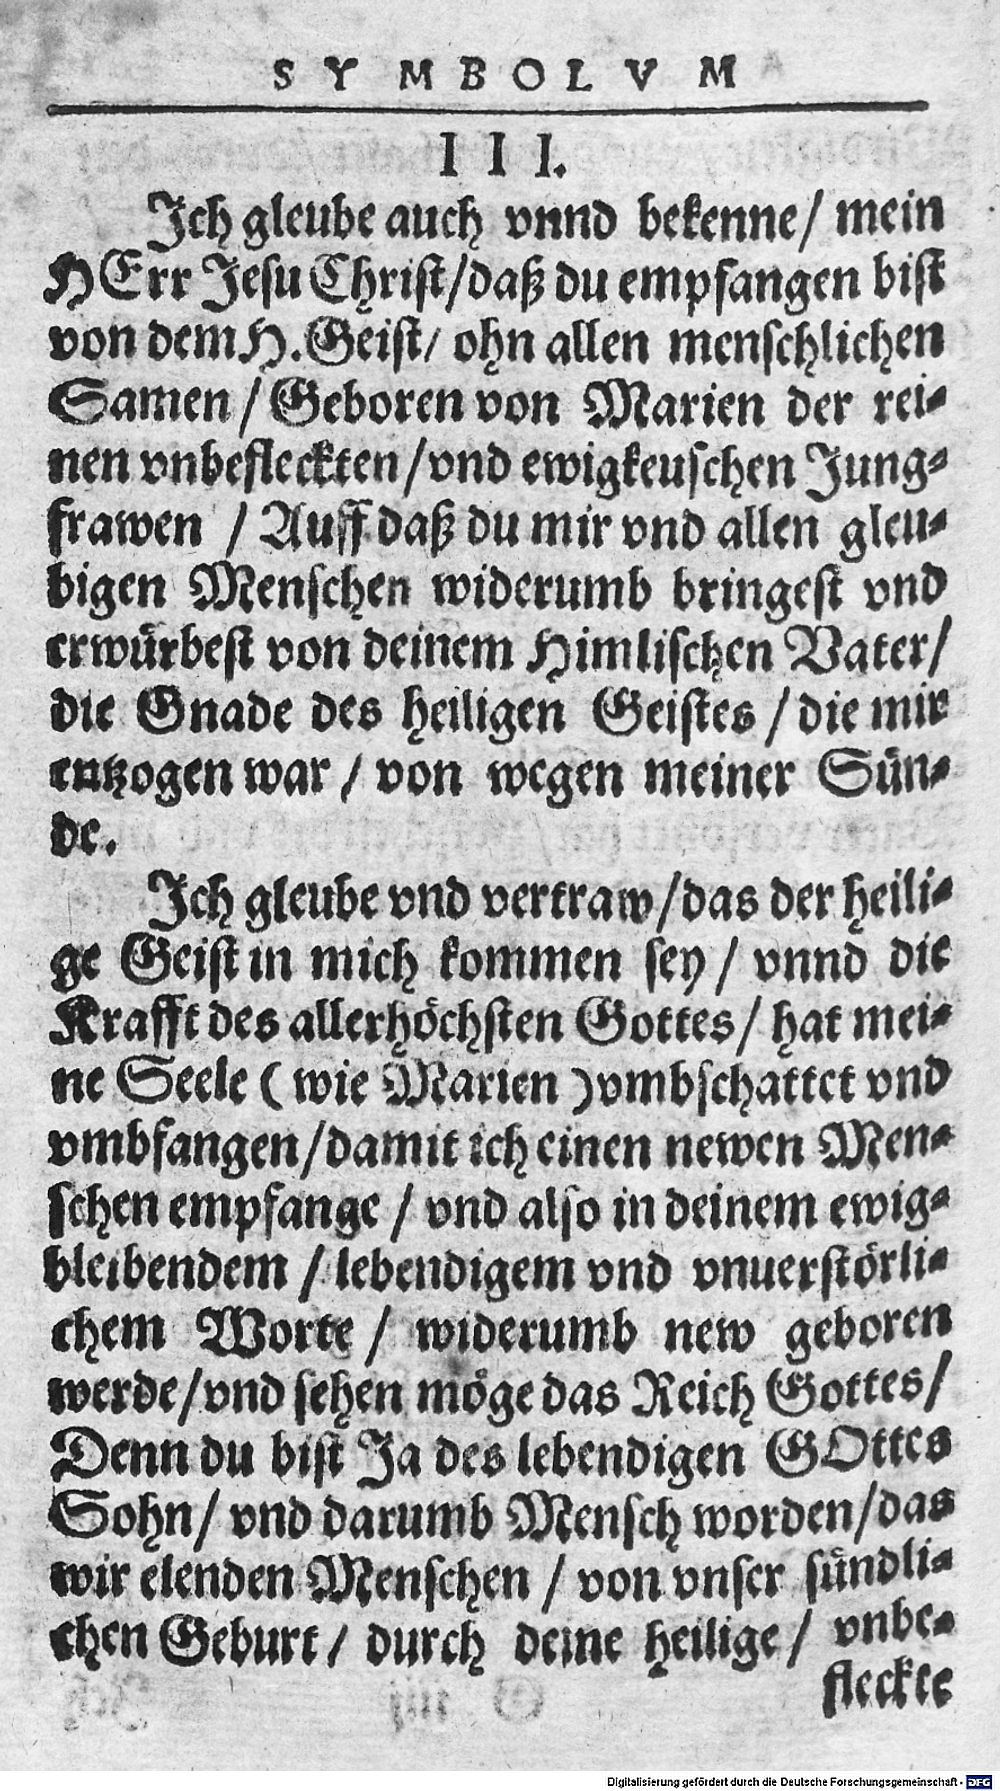 SYMBOLVM
III.
Ich gleube auch vnnd bekenne/ mein
HErr Jesu Christ/daß du empfangen bist
von dem H. Geist/ ohn allen menschlichen
Samen/ Geboren von Marien der rei-
nen vnbefleckten/vnd ewigkeuschen Jung-
frawen / Auff daß du mir vnd allen gleu-
bigen Menschen widerumb bringest vnd
erwürbest von deinem Himlischen Vater/
die Gnade des heiligen Geistes/ die mir
entzogen war/ von wegen meiner Sün-
de.
Ich gleube vnd vertraw/das der heili-
ge Geist in mich kommen sey/ vnnd die
Krafft des allerhöchsten Gottes/ hat mei-
ne Seele (wie Marien) vmbschattet vnd
vmbfangen/damit ich einen newen Men-
schen empfange/ vnd also in deinem ewig-
bleibendem/ lebendigem vnd vnuerstörli-
chem Worte/ widerumb new geboren
werde/vnd sehen möge das Reich Gottes/
Denn du bist Ja des lebendigen GOttes
Sohn/ vnd darumb Mensch worden/das
wir elenden Menschen/ von vnser sündli-
chen Geburt/ durch deine heilige/ vnbe-
fleckte
Digitalisierung gefördert durch die Deutsche Forschungsgemeinschaft - DFG